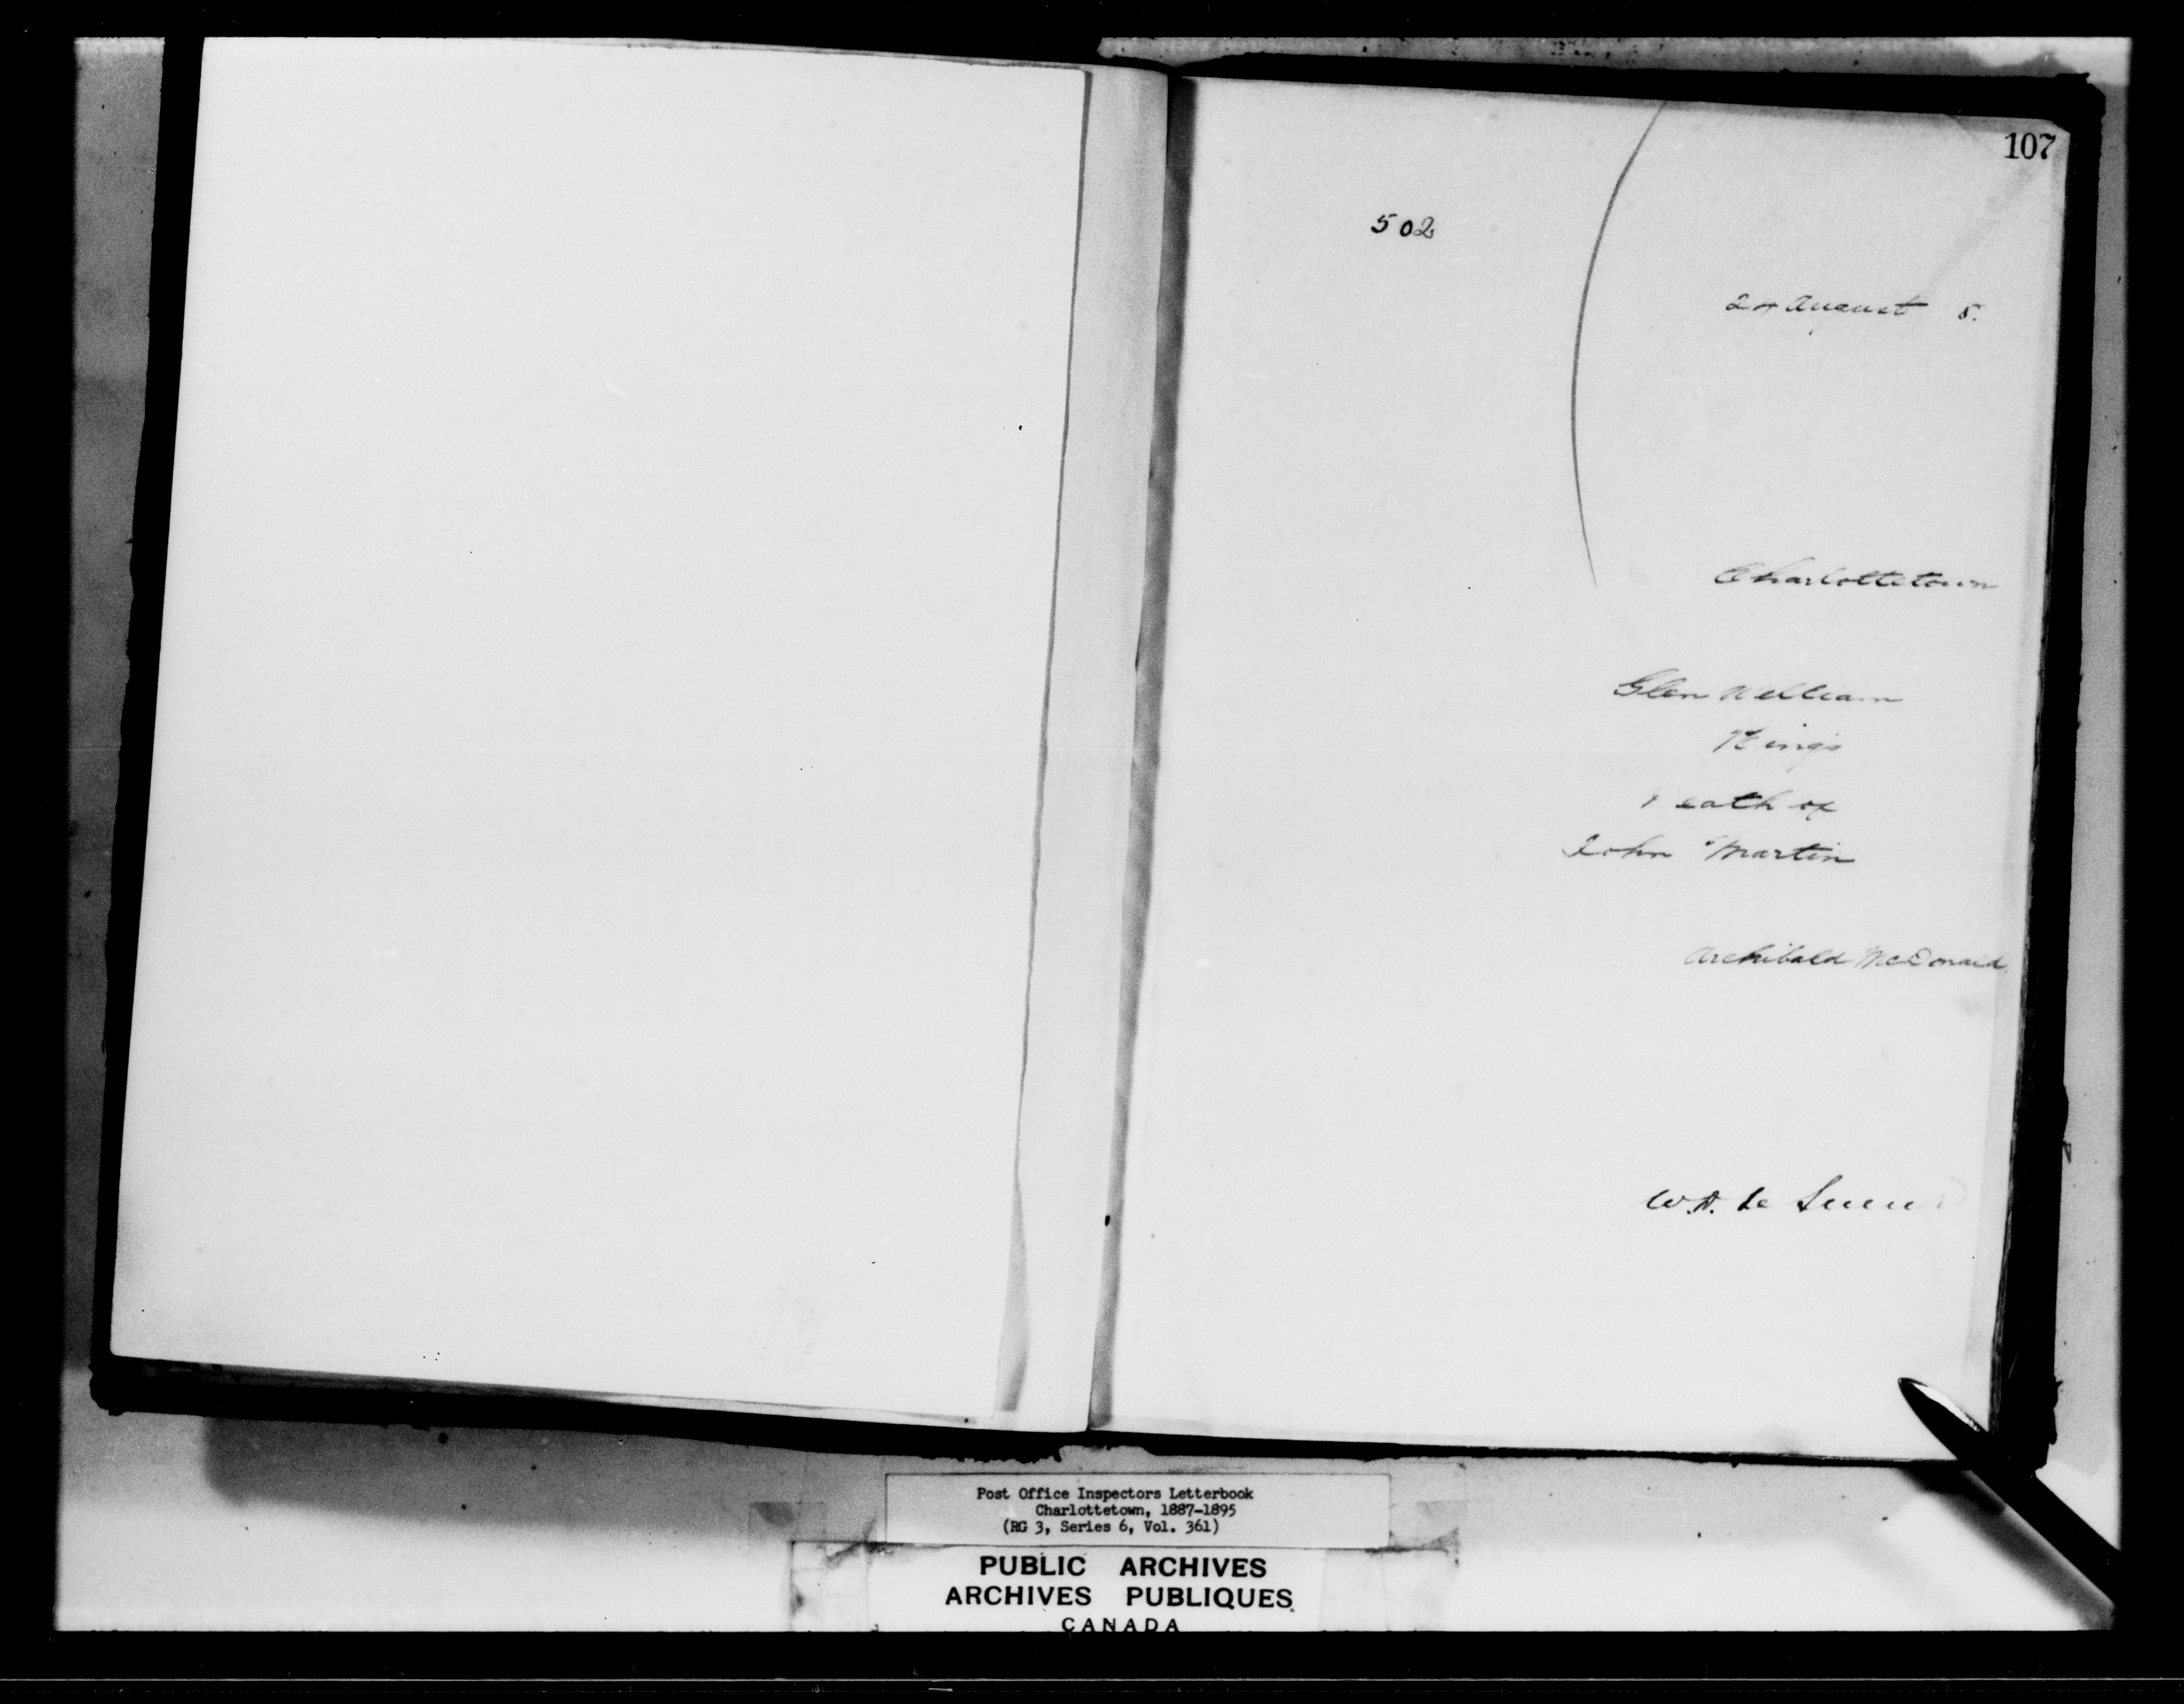 107
502
24 August 8.
Charlottetown
Glen William
Kings
Death of
John Martin
Archibald McDonald
W.A. de
Post Office Inspectors Letterbook
Charlottetown, 1887-1895
(RG 3, Series 6, Vol. 361)
PUBLIC ARCHIVES
ARCHIVES PUBLIQUES
CANADA